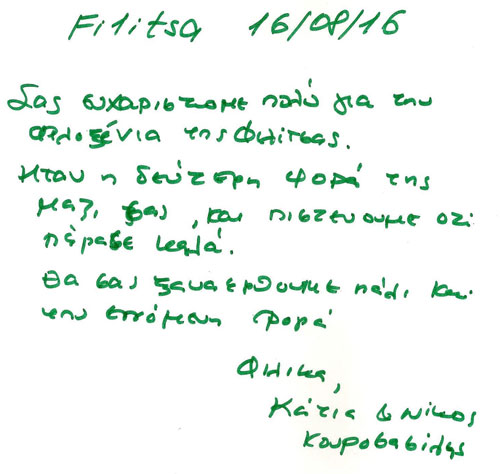 Filitsa 16/08/16
Σας ευχαριστουμε πολύ για την
Φιλοξένια της Φιλιτσας.
Ηταν η δεύτερη φορά της
μαζι σας, και πιστευουμε οτι
πέρασε καλά.
Θα σας ξαναερθουμε πάλι και
την επόμενη φορά
Φιλικα,
Κάτια & Νίκος